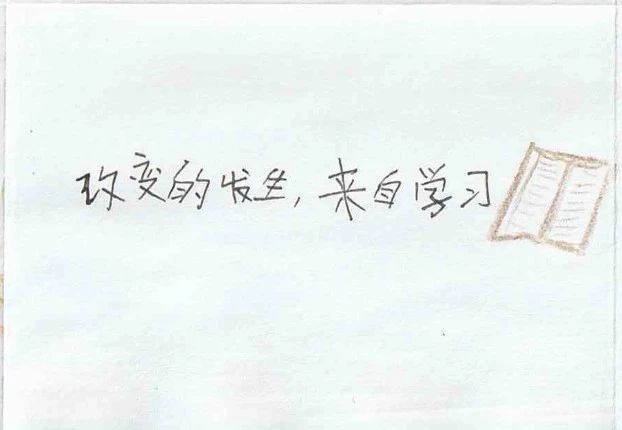 改变的发生，来自学习